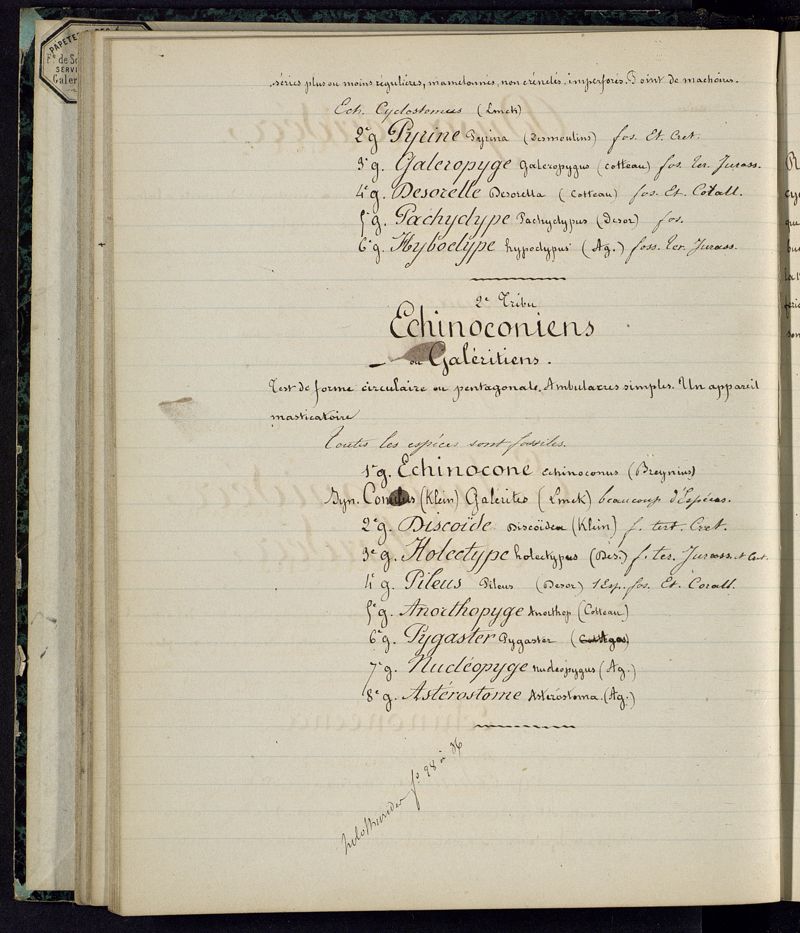 PAPETE
F^g de S
SERVI
Galer
séries plus ou moins régulières, mamelonnés, non crénelés, imperforés. Point de machoires.
Ech. Cyclostomes (Lmck)
2^e g. Pyrine Pyrina (Desmoulins) fos. Et. Cret.
3^e g. Galeropyge Galeropygus (Cotteau) fos. ter. Jurass.
4^e g. Desorelle Desorella (Cotteau) fos. Et. Corall.
5^e g. Pachyclype Pachyclypus (Desor) fos.
6^e g. Hyboclype hypoclypus (Ag.) foss. ter. Jurass.
2^e Tribu
Echinoconiens
ou Galéritiens.
Test de forme circulaire ou pentagonale. Ambulacres simples. Un appareil
masticatoire
Toutes les espéces sont fossiles.
1^r g. Echinocone Echinoconus (Breynius)
Syn. Conulus (Klein) Galérites (Lmck) beaucoup d'Espéces.
2^e g. Discoïde Discoïdea (Klein) f. tert. Cret.
3^e g. Holectype holectypus (Des.) f. ter. Jurass. et Cret.
4^e g. Pileus Pileus (Desor) 1 Esp. fos. Et. Corall.
5^e g. Anorthopyge Anorthop. (Cotteau)
6^e g. Pygaster Pygaster
7^e g. Nucléopyge Nucleopygus (Ag.)
8^e g. Astérostome Asterostoma. (Ag.)
holothurides f^o 28 à 36